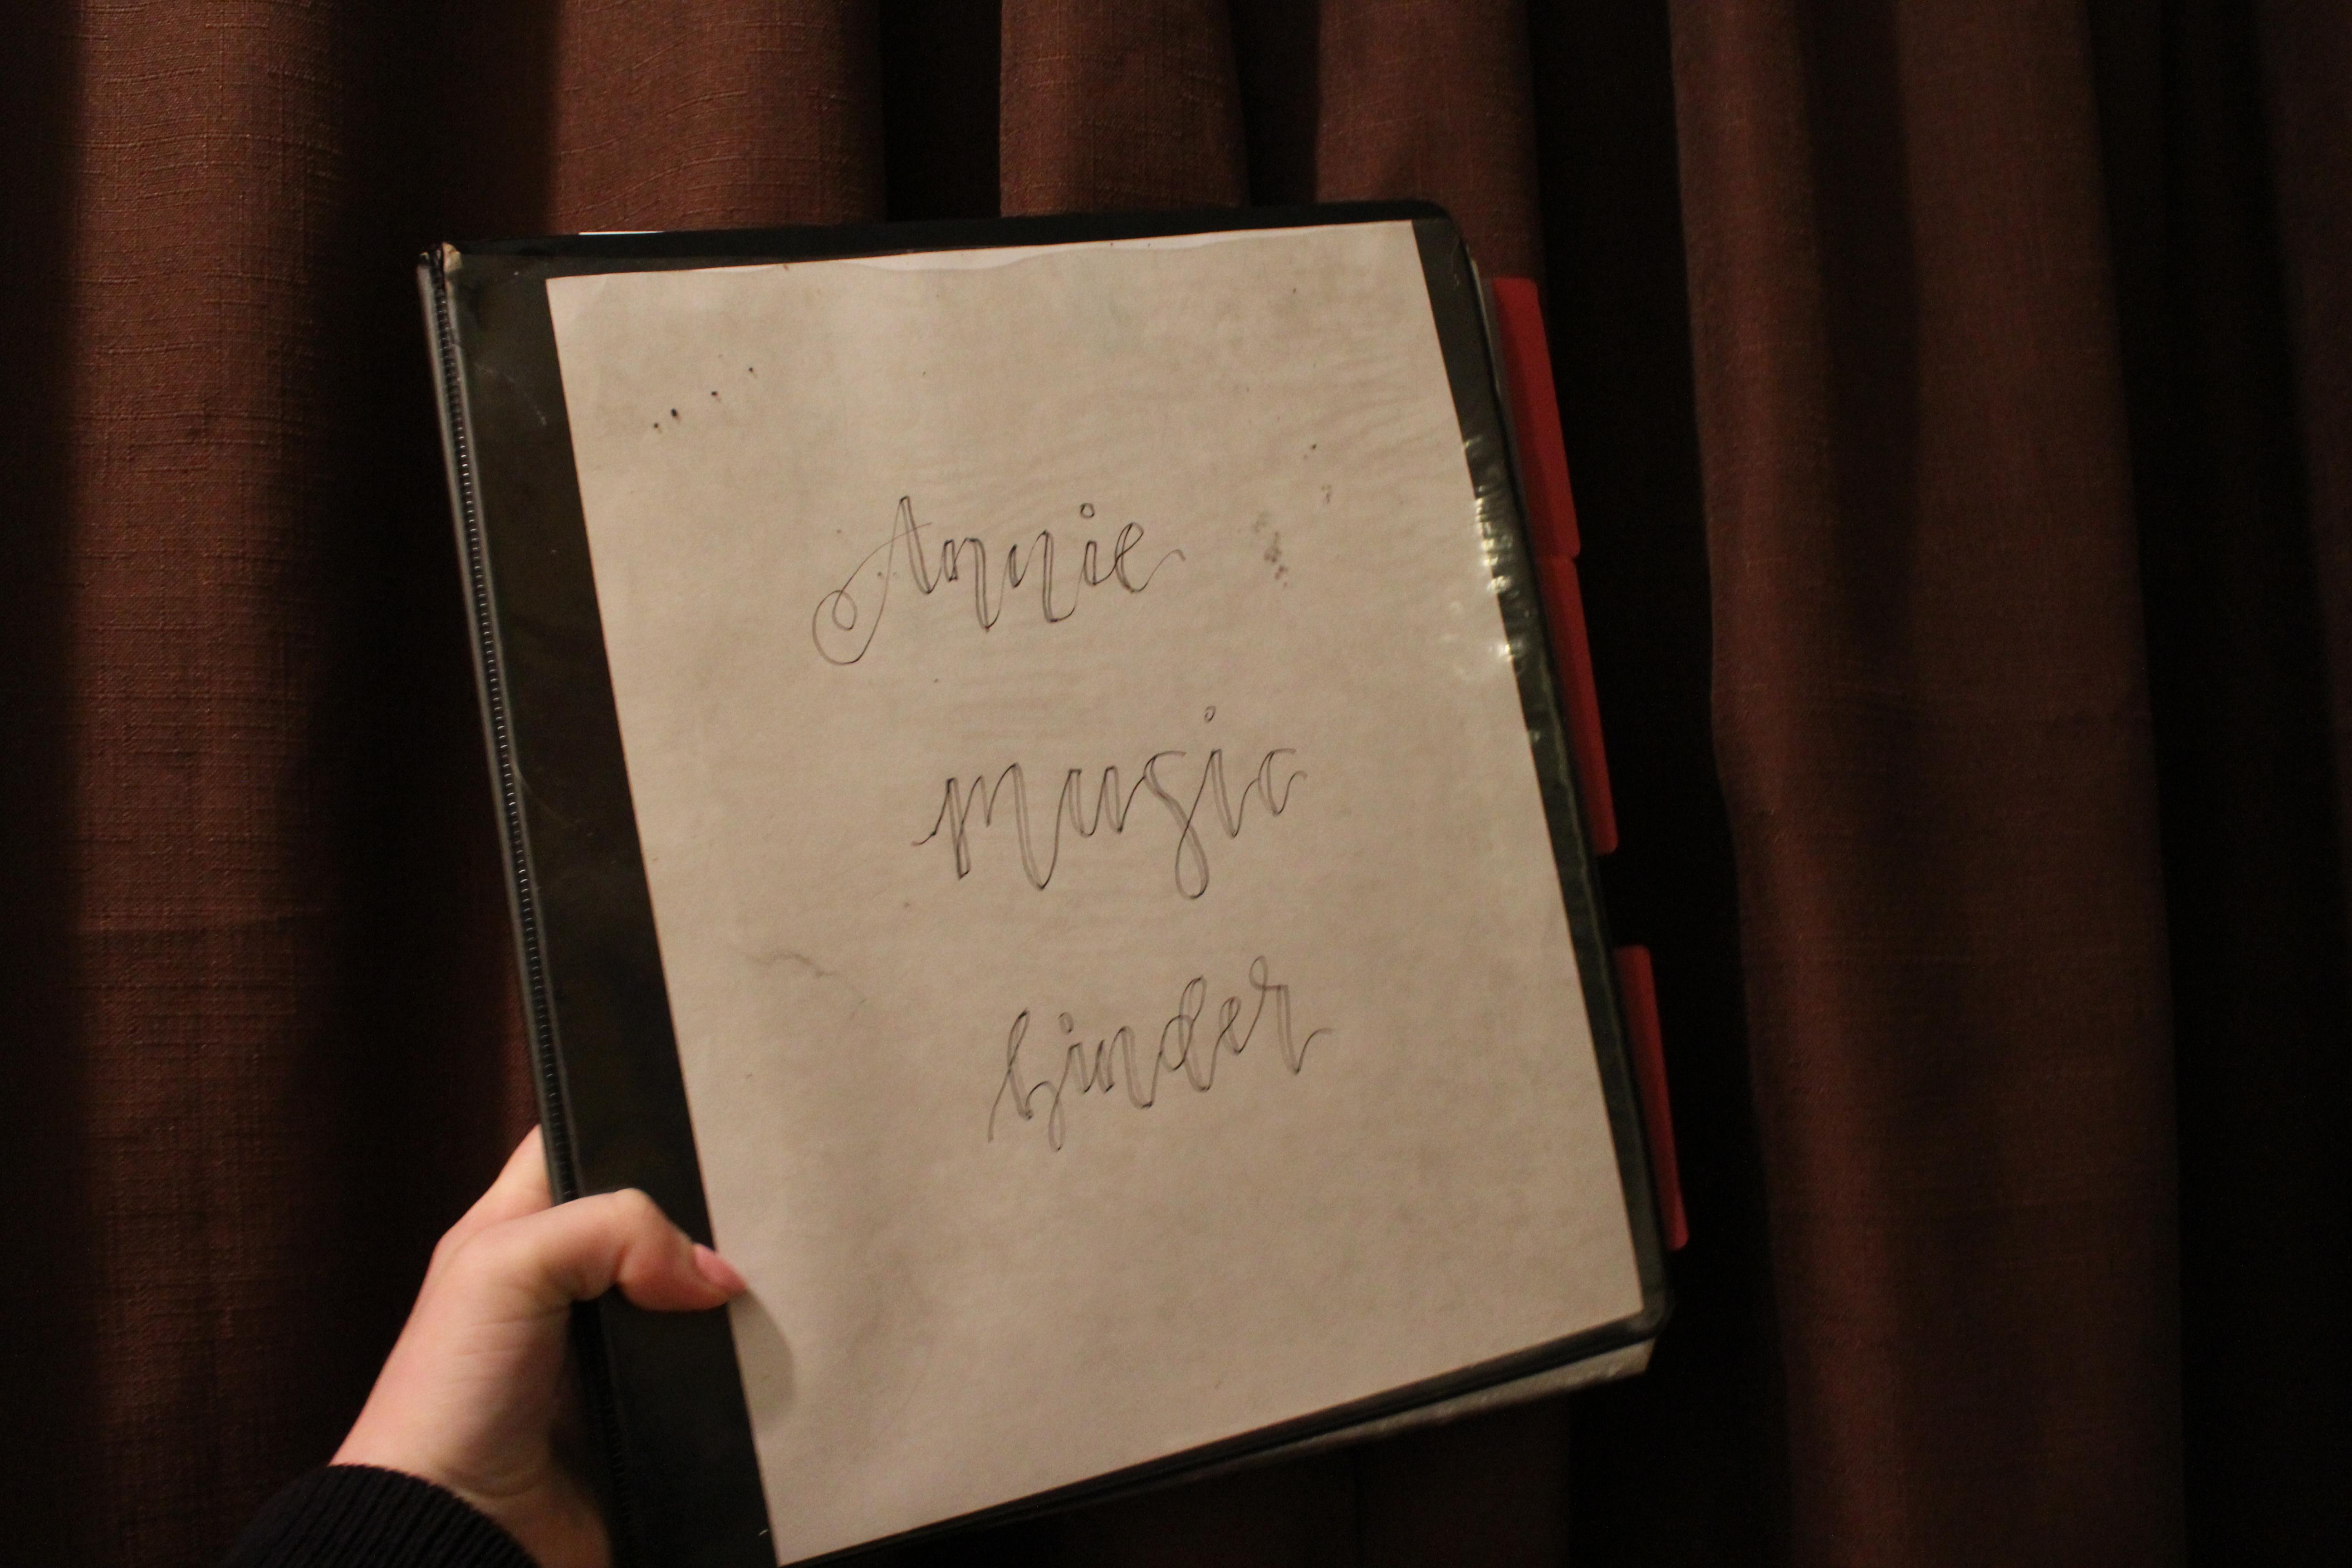 Annie
music
binder